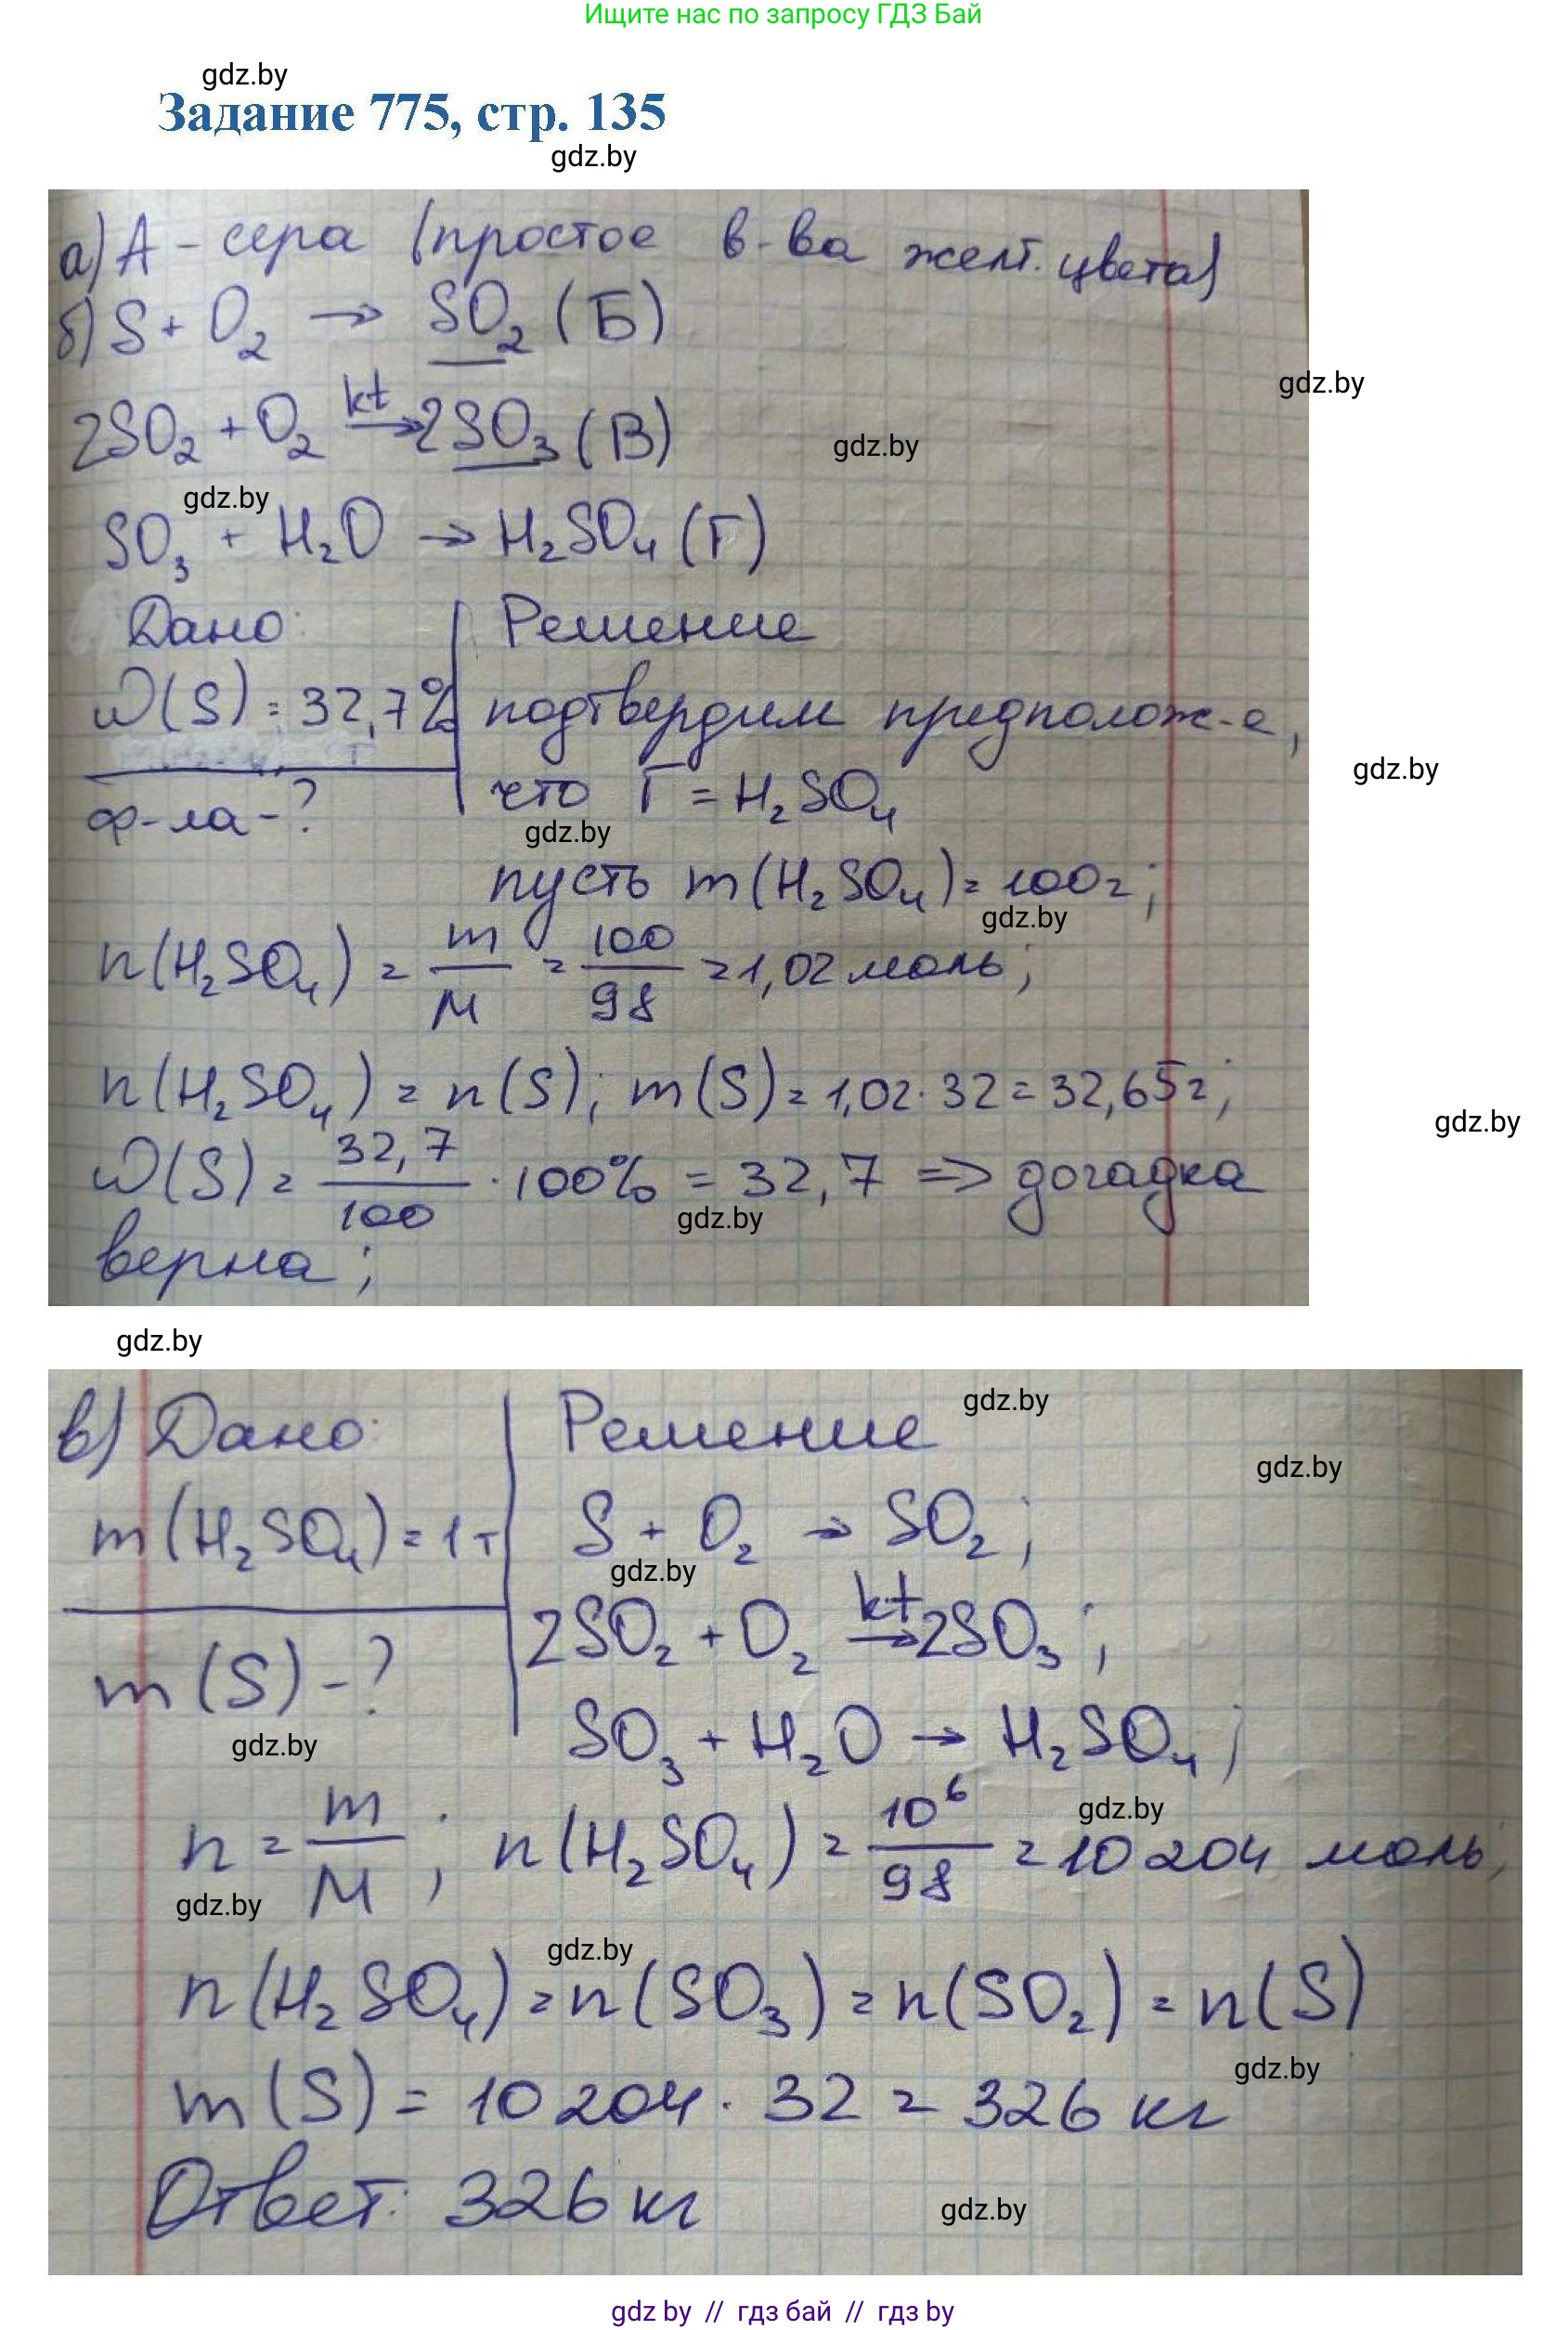 Ищите нас по запросу ГДЗ Бай
gdz.by
Задание 775, стр. 135
gdz.by
а) А - сера (простое в-ва желт. цвета)
б) S + O₂ → SO₂ (Б)
gdz.by
2SO₂ + O₂ kt→ 2SO₃ (В)
gdz.by
gdz.by
SO₃ + H₂O → H₂SO₄ (Г)
Дано: Решение
ω(S) = 32,7% подтвердим предполож-е,
gdz.by
ф-ла - ? что Г = H₂SO₄
gdz.by
пусть m(H₂SO₄) = 100г;
gdz.by
n(H₂SO₄) = m/M = 100/98 = 1,02 моль;
n(H₂SO₄) = n(S); m(S) = 1,02 · 32 = 32,65г;
gdz.by
ω(S) = 32,7/100 · 100% = 32,7 => догадка
gdz.by
верна;
gdz.by
в) Дано: Решение
gdz.by
gdz.by
m(H₂SO₄) = 1т S + O₂ → SO₂;
gdz.by
2SO₂ + O₂ kt→ 2SO₃;
m(S) - ?
gdz.by
SO₃ + H₂O → H₂SO₄;
gdz.by
n = m/M; n(H₂SO₄) = 10⁶/98 = 10 204 моль;
gdz.by
gdz.by
n(H₂SO₄) = n(SO₃) = n(SO₂) = n(S)
gdz.by
m(S) = 10 204 · 32 = 326 кг
Ответ: 326 кг
gdz.by
gdz by // гдз бай // gdz by